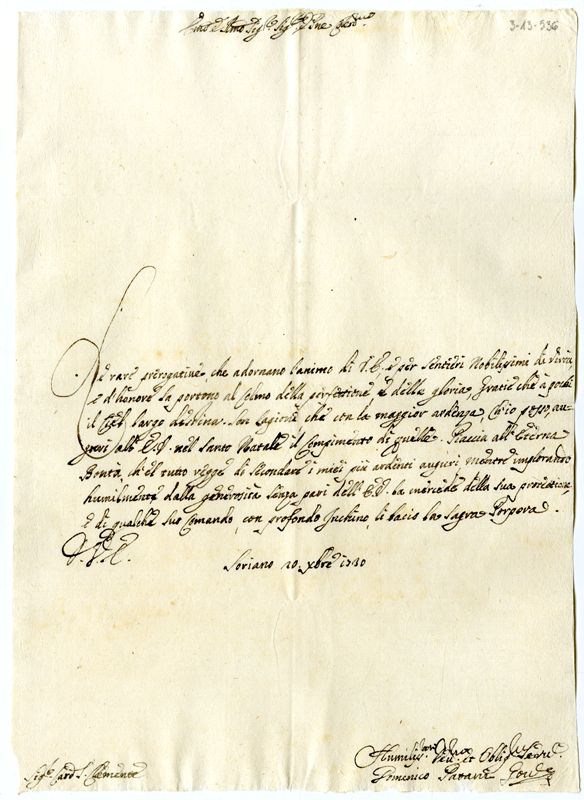 3-13-936
Em̃o e Rm̃o Sig.re Sig.re P̃ne
Le rare prerogative, che adornano l'animo di V.E. e per sentieri Nobilissimi di virtù
e d'honore la portono al Colmo della perfettione, e della gloria, Gratie che à pochi
il Ciel largo destina, son cagione che con la maggior ardenza, ch'io posso, au-
guri all'E.V. nel Santo Natale il Compimento di quelle. Piaccia all'Eterna
Bontà, ch'el tutto regge di secondare i miei più ardenti auguri mentre implorando
humilmente dalla generosità senza pari dell'E.V. la mercede della sua protettione,
e di qualche suo Comando, con profondo Inchino, li bacio la Sagra Porpora.
D.V.E.
Soriano 20. Xbre 1710
Humiliss. et Oblig. Serv.
Sig.re Card. S. Clemente
Domenico